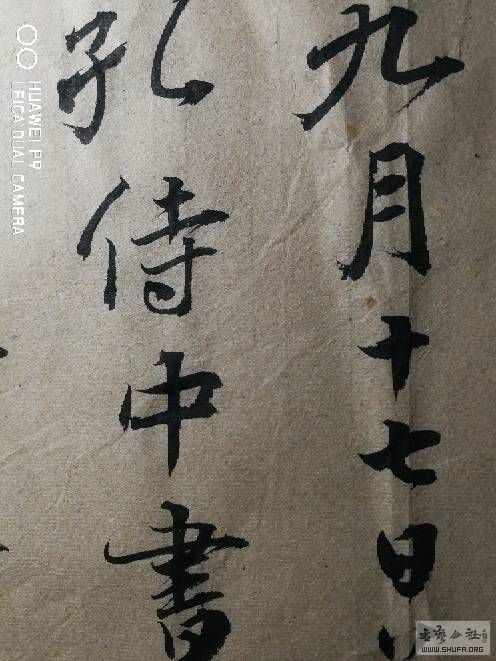 九月十七日
孔侍中書
HUAWEI P9
LEICA DUAL CAMERA
WWW.SHUFA.ORG